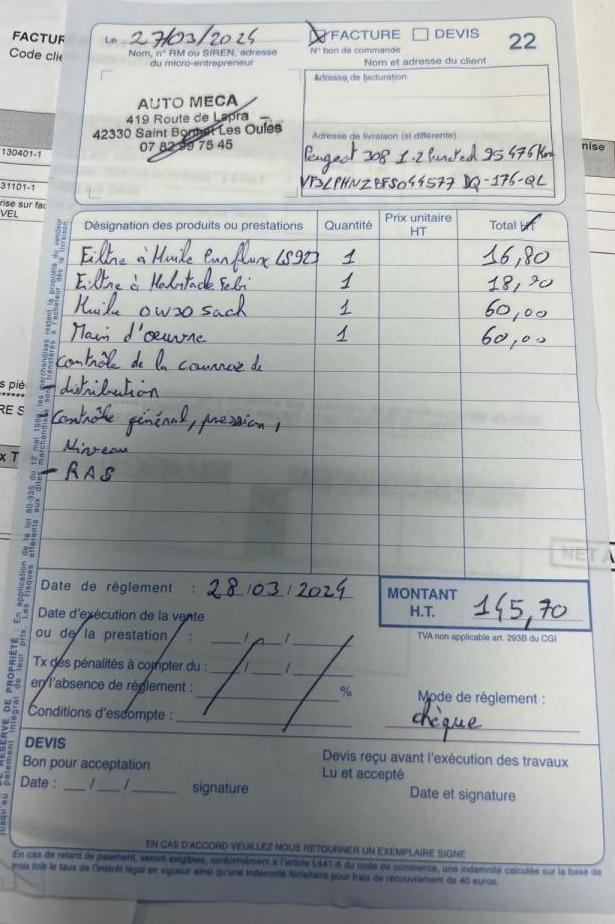 FACTUR
Code clie
130401-1
31101-1
rise sur fac
VEL
s pié
RE S
x T
nise
NET A
Le 27/03/2024
Nom, n° RM ou SIREN, adresse
du micro-entrepreneur
AUTO MECA
419 Route de Lapra
42330 Saint Bonnet Les Oules
07 82 99 75 45
FACTURE DEVIS 22
N° bon de commande
Nom et adresse du client
Adresse de facturation
Adresse de livraison (si différente)
Peugeot 308 1.2 Pureted 95476 Km
DQ-176-QL
Désignation des produits ou prestations Quantité Prix unitaire HT Total HT
Filtre à Huile Purflux LS923 1 16,80
Filtre à Habitacle Febi 1 18,90
Huile 0W30 Sach 1 60,00
Main d'œuvre 1 60,00
Contrôle de la courroie de
- distribution
Contrôle général, pression,
Niveau
- RAS
Date de règlement : 28/03/2024
MONTANT H.T. 145,70
Date d'exécution de la vente
ou de la prestation : __/__/____
TVA non applicable art. 293B du CGI
Tx des pénalités à compter du : __/__/____
en l'absence de règlement : %
Mode de règlement :
chèque
Conditions d'escompte :
DEVIS
Bon pour acceptation
Date : __/__/____ signature
Devis reçu avant l'exécution des travaux
Lu et accepté
Date et signature
EN CAS D'ACCORD VEUILLEZ NOUS RETOURNER UN EXEMPLAIRE SIGNE
En cas de retard de paiement, seront exigibles, conformément à l'article L441-6 du code de commerce, une indemnité calculée sur la base de
trois fois le taux de l'intérêt légal en vigueur ainsi qu'une indemnité forfaitaire pour frais de recouvrement de 40 euros.
RESERVE DE PROPRIÉTÉ : En application de la loi 80-335 du 12 mai 1980, les marchandises restent la propriété du vendeur
jusqu'au paiement intégral de leur prix. Les risques afférents aux dites marchandises sont transférés à l'acheteur dès la livraison.